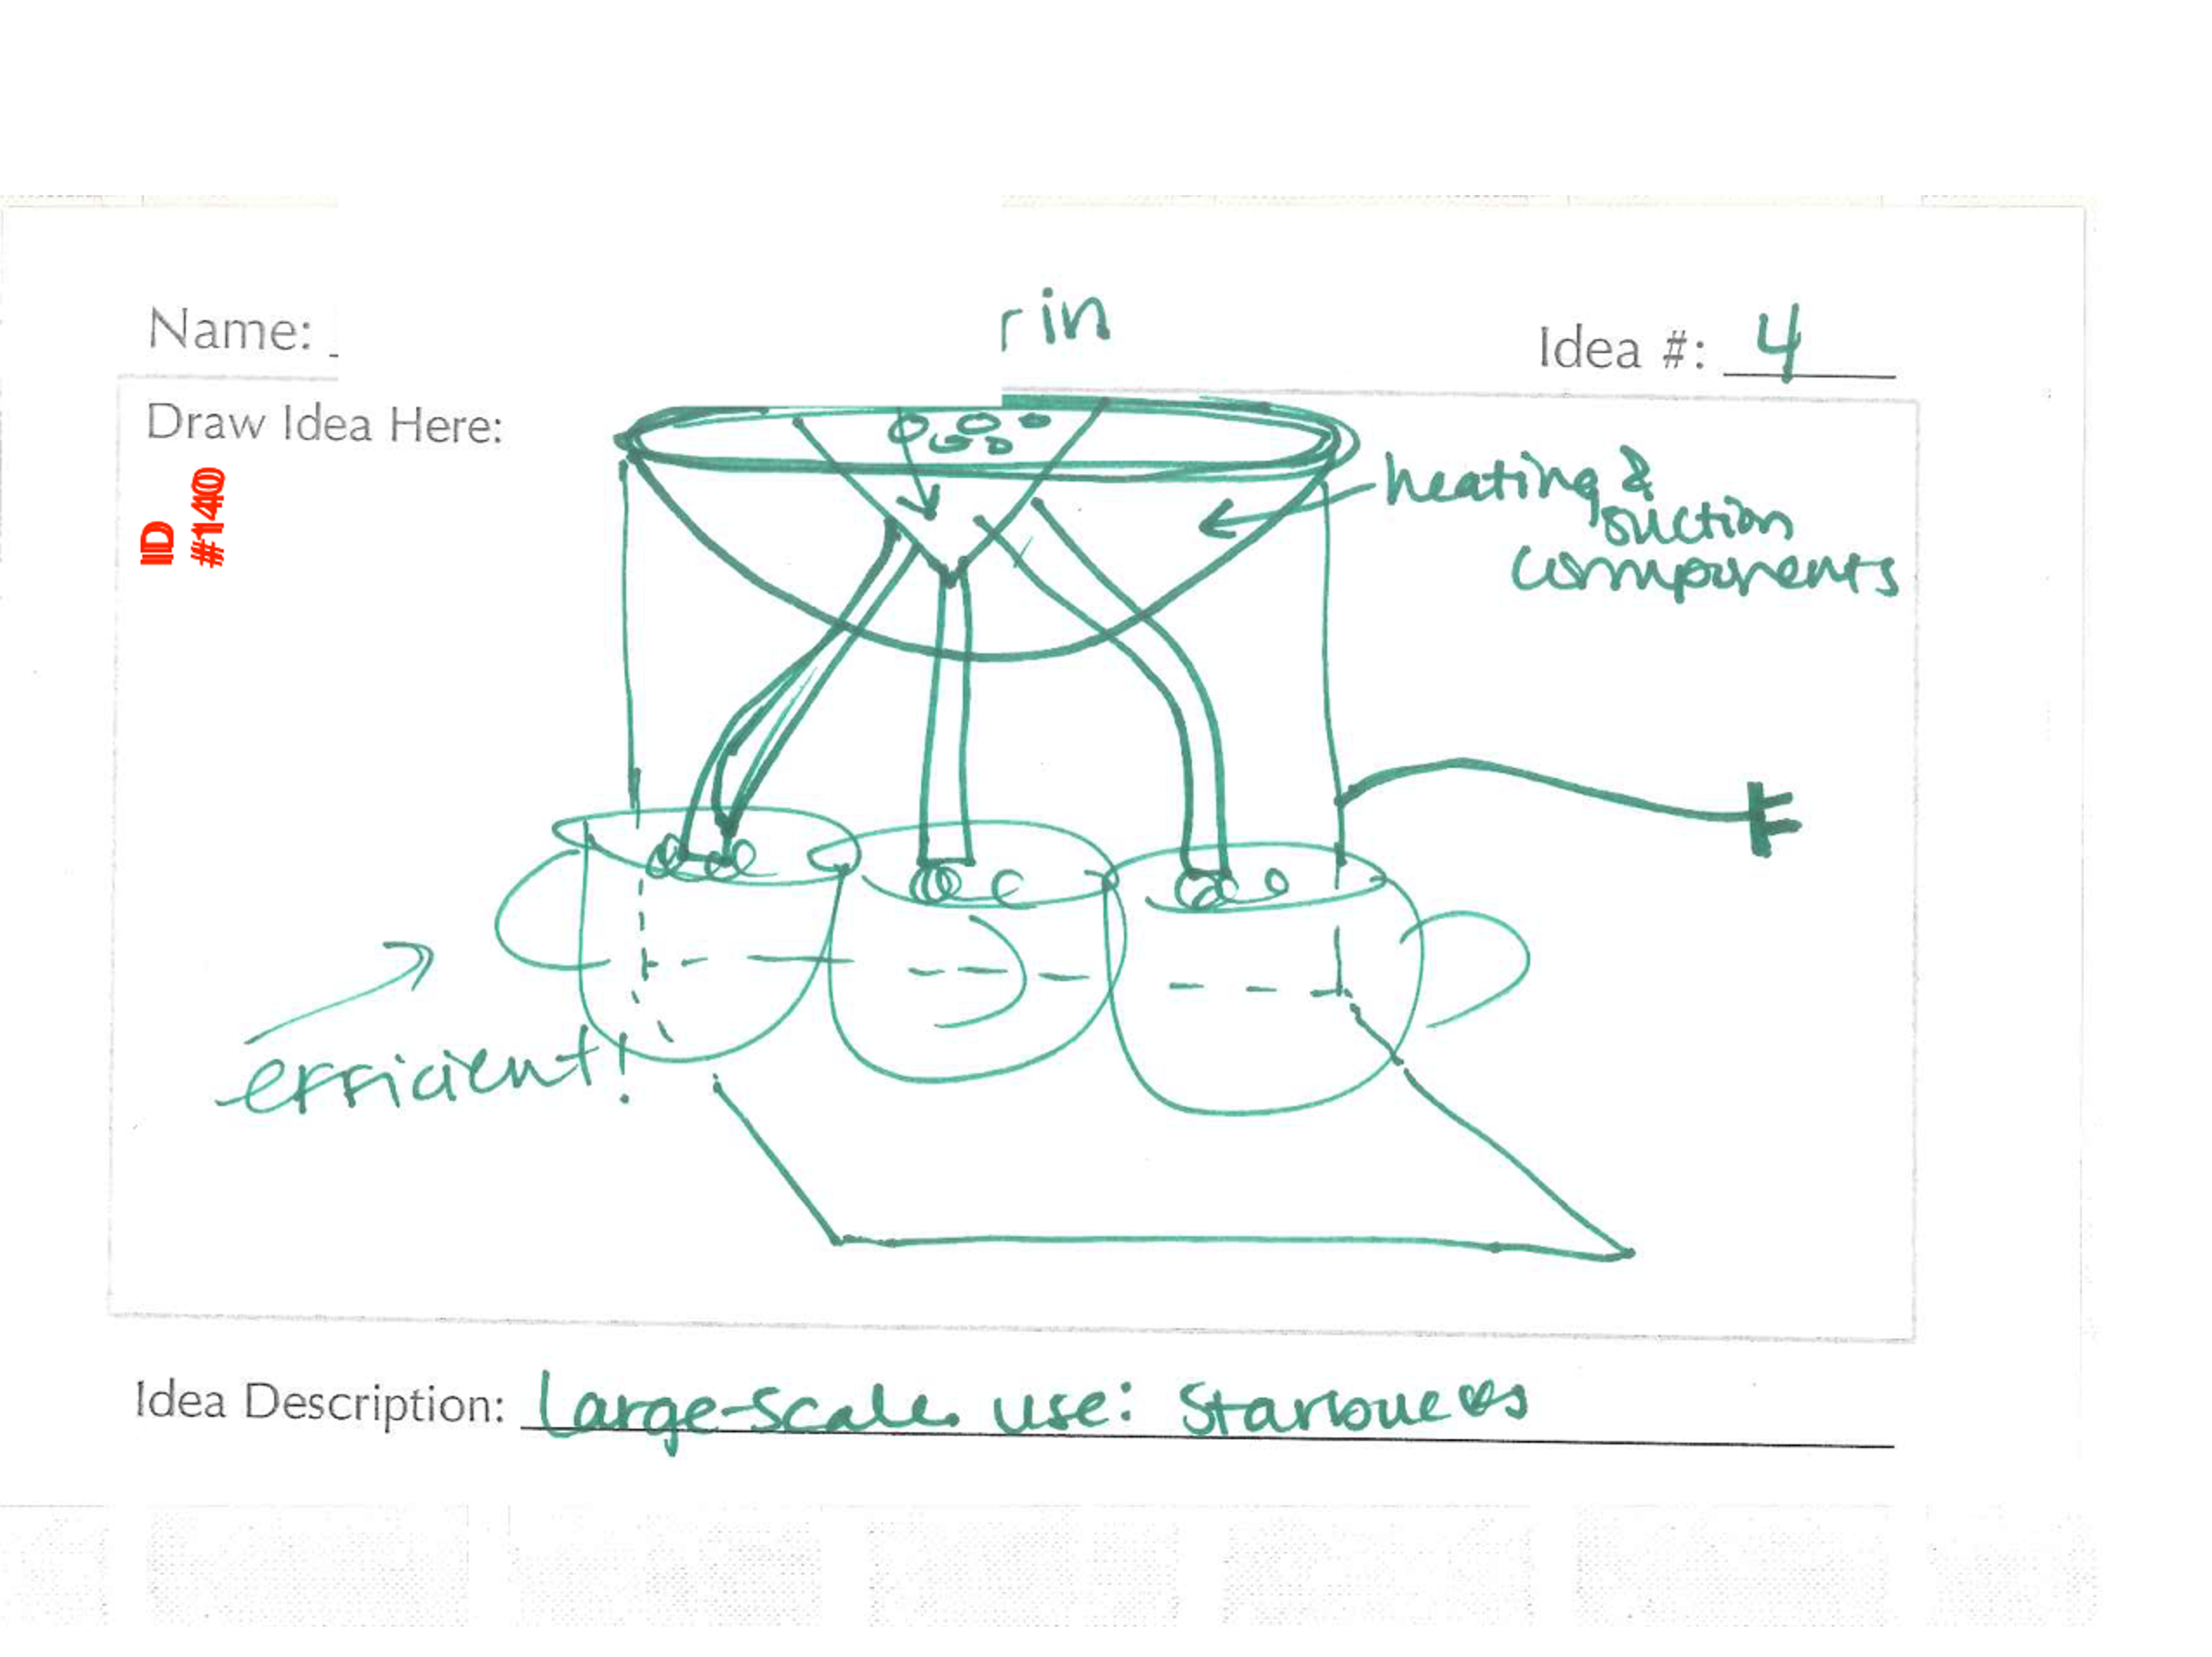 Name:
rin
Idea #: 4
Draw Idea Here:
ID
#140
heating &
suction
components
efficient!
Idea Description: Large-scale use: Starbucks